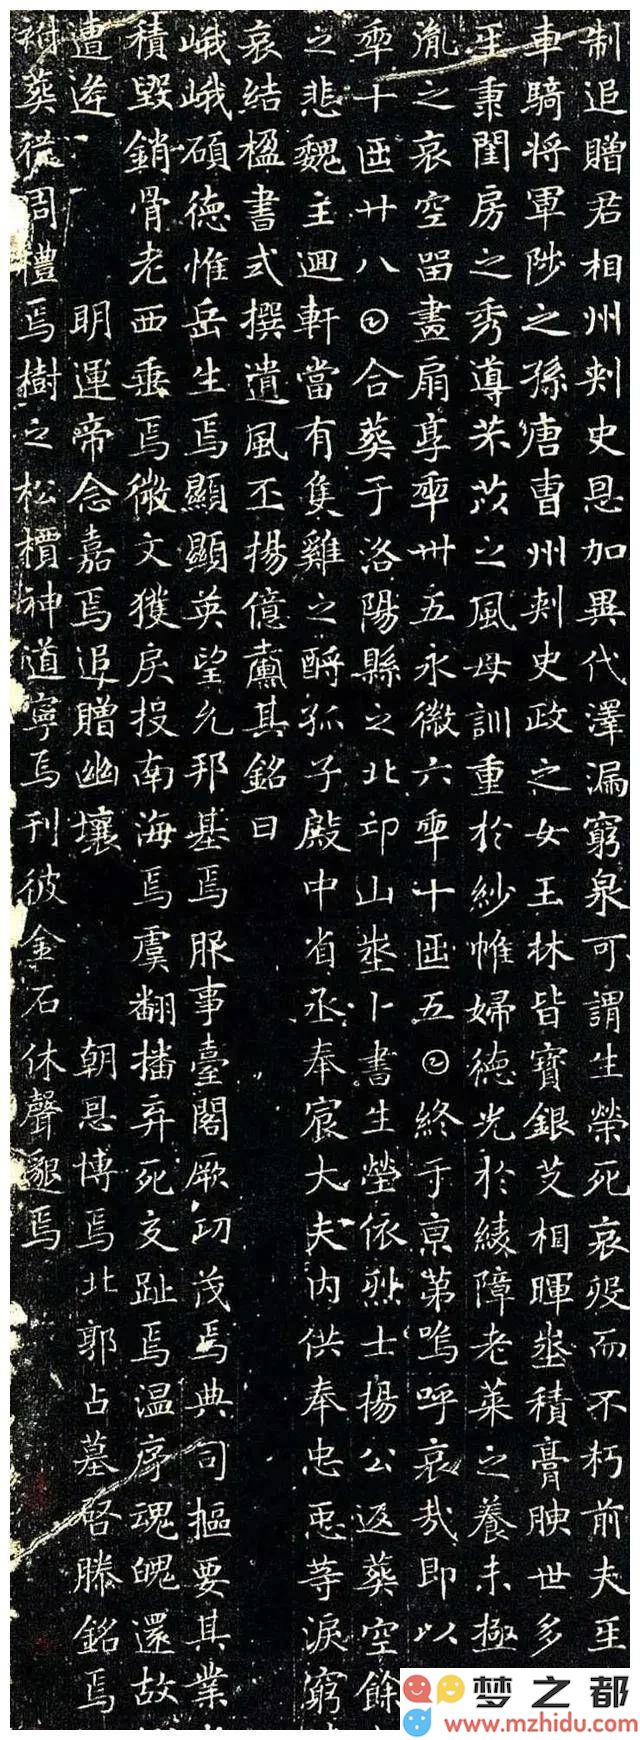 制追贈君相州刾史恩加異代澤漏窮泉可謂生榮死哀歿而不朽前夫𤯔
車騎将軍陟之孫唐曹州刾史政之女王林皆寶銀艾相暉埊積膏腴世多
𤯔秉閨房之秀導芣苡之風母訓重於紗帷婦德光於綾障老萊之養未極
胤之哀空留畫扇享𠡦卌五永徽六𠡦十𠥱五𡆠終于京第嗚呼哀哉即以
𠡦十𠥱廿八𡆠合葬于洛陽縣之北邙山埊卜書生塋依烈士揚公返葬空餘
之悲魏主迴軒當有隻雞之酹孤子殿中省丞奉宸大夫内供奉忠𢘑等淚窮
哀結楹書式撰遺風丕揚億𡕀其銘曰
峨峨碩德惟岳生焉顯顯英望允邦基焉服事臺閣厥功茂焉典司樞要其業
積毀銷骨老西垂焉微文獲戾投南海焉虞翻播弃死交趾焉温序魂魄還故
遭逄 明運帝念嘉焉追贈幽壤 朝恩博焉北郭占墓啓滕銘焉
祔葬從周禮焉樹之松檟神道寧焉刊彼金石休聲邈焉
梦之都
www.mzhidu.com